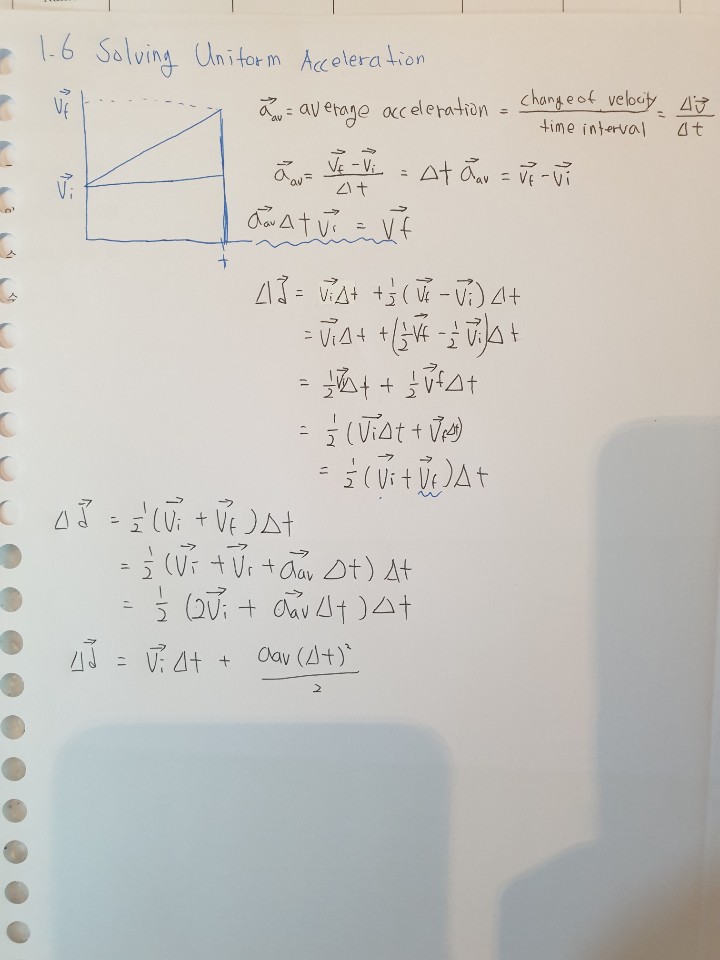 1.6 Solving Uniform Acceleration
v⃗f
v⃗i
t
a⃗av = average acceleration = change of velocity / time interval = Δv⃗ / Δt
a⃗av = (v⃗f - v⃗i) / Δt = Δt a⃗av = v⃗f - v⃗i
a⃗av Δt v⃗i = v⃗f
Δd⃗ = v⃗iΔt + ½(v⃗f - v⃗i)Δt
= v⃗iΔt + (½v⃗f - ½v⃗i)Δt
= ½v⃗iΔt + ½v⃗fΔt
= ½(v⃗iΔt + v⃗fΔt)
= ½(v⃗i + v⃗f)Δt
Δd⃗ = ½(v⃗i + v⃗f)Δt
= ½(v⃗i + v⃗i + a⃗av Δt)Δt
= ½(2v⃗i + a⃗av Δt)Δt
Δd⃗ = v⃗iΔt + aav(Δt)² / 2